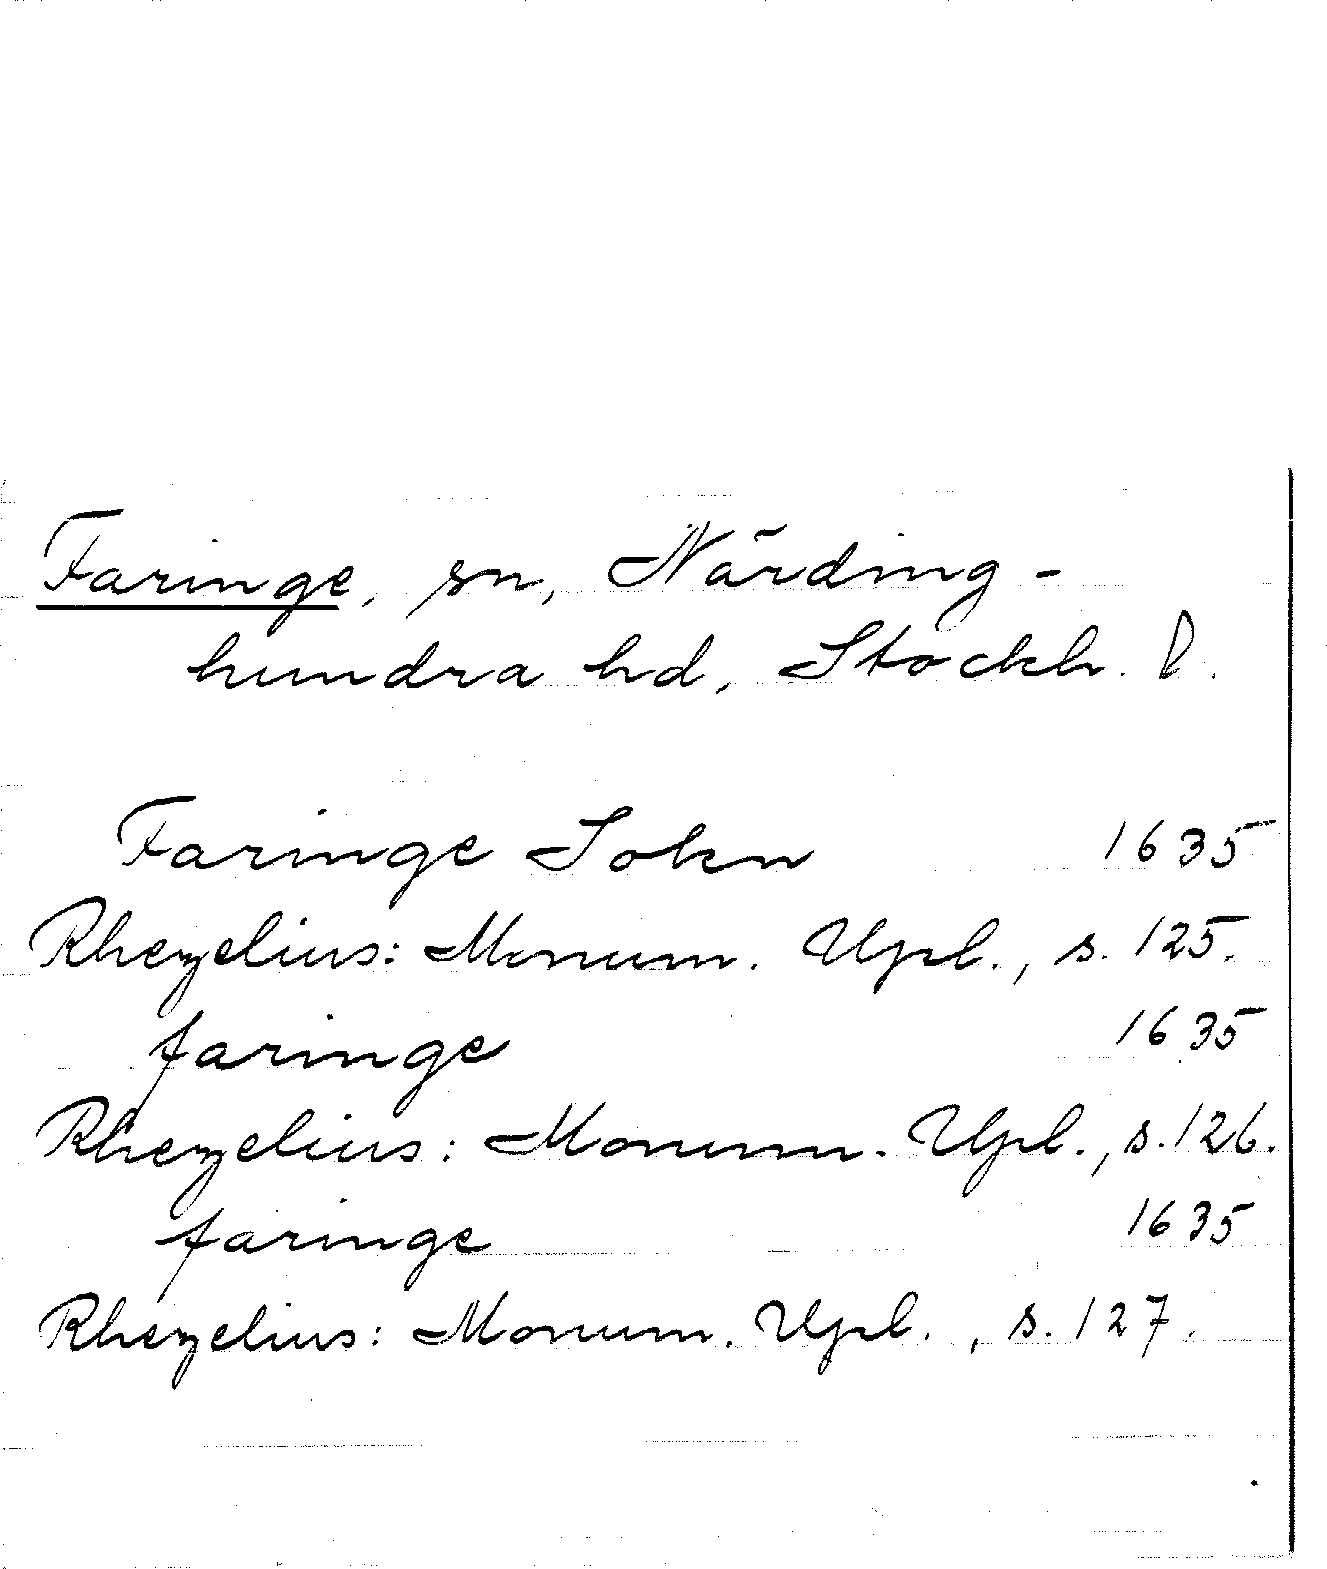 Faringe, sn, Närding-
hundra hd, Stockh. l.
Faringe Sokn 1635
Rhezelius: Monum. Upl., s. 125.
faringe 1635
Rhezelius: Monum. Upl., s. 126.
faringe 1635
Rhezelius: Monum. Upl., s. 127.